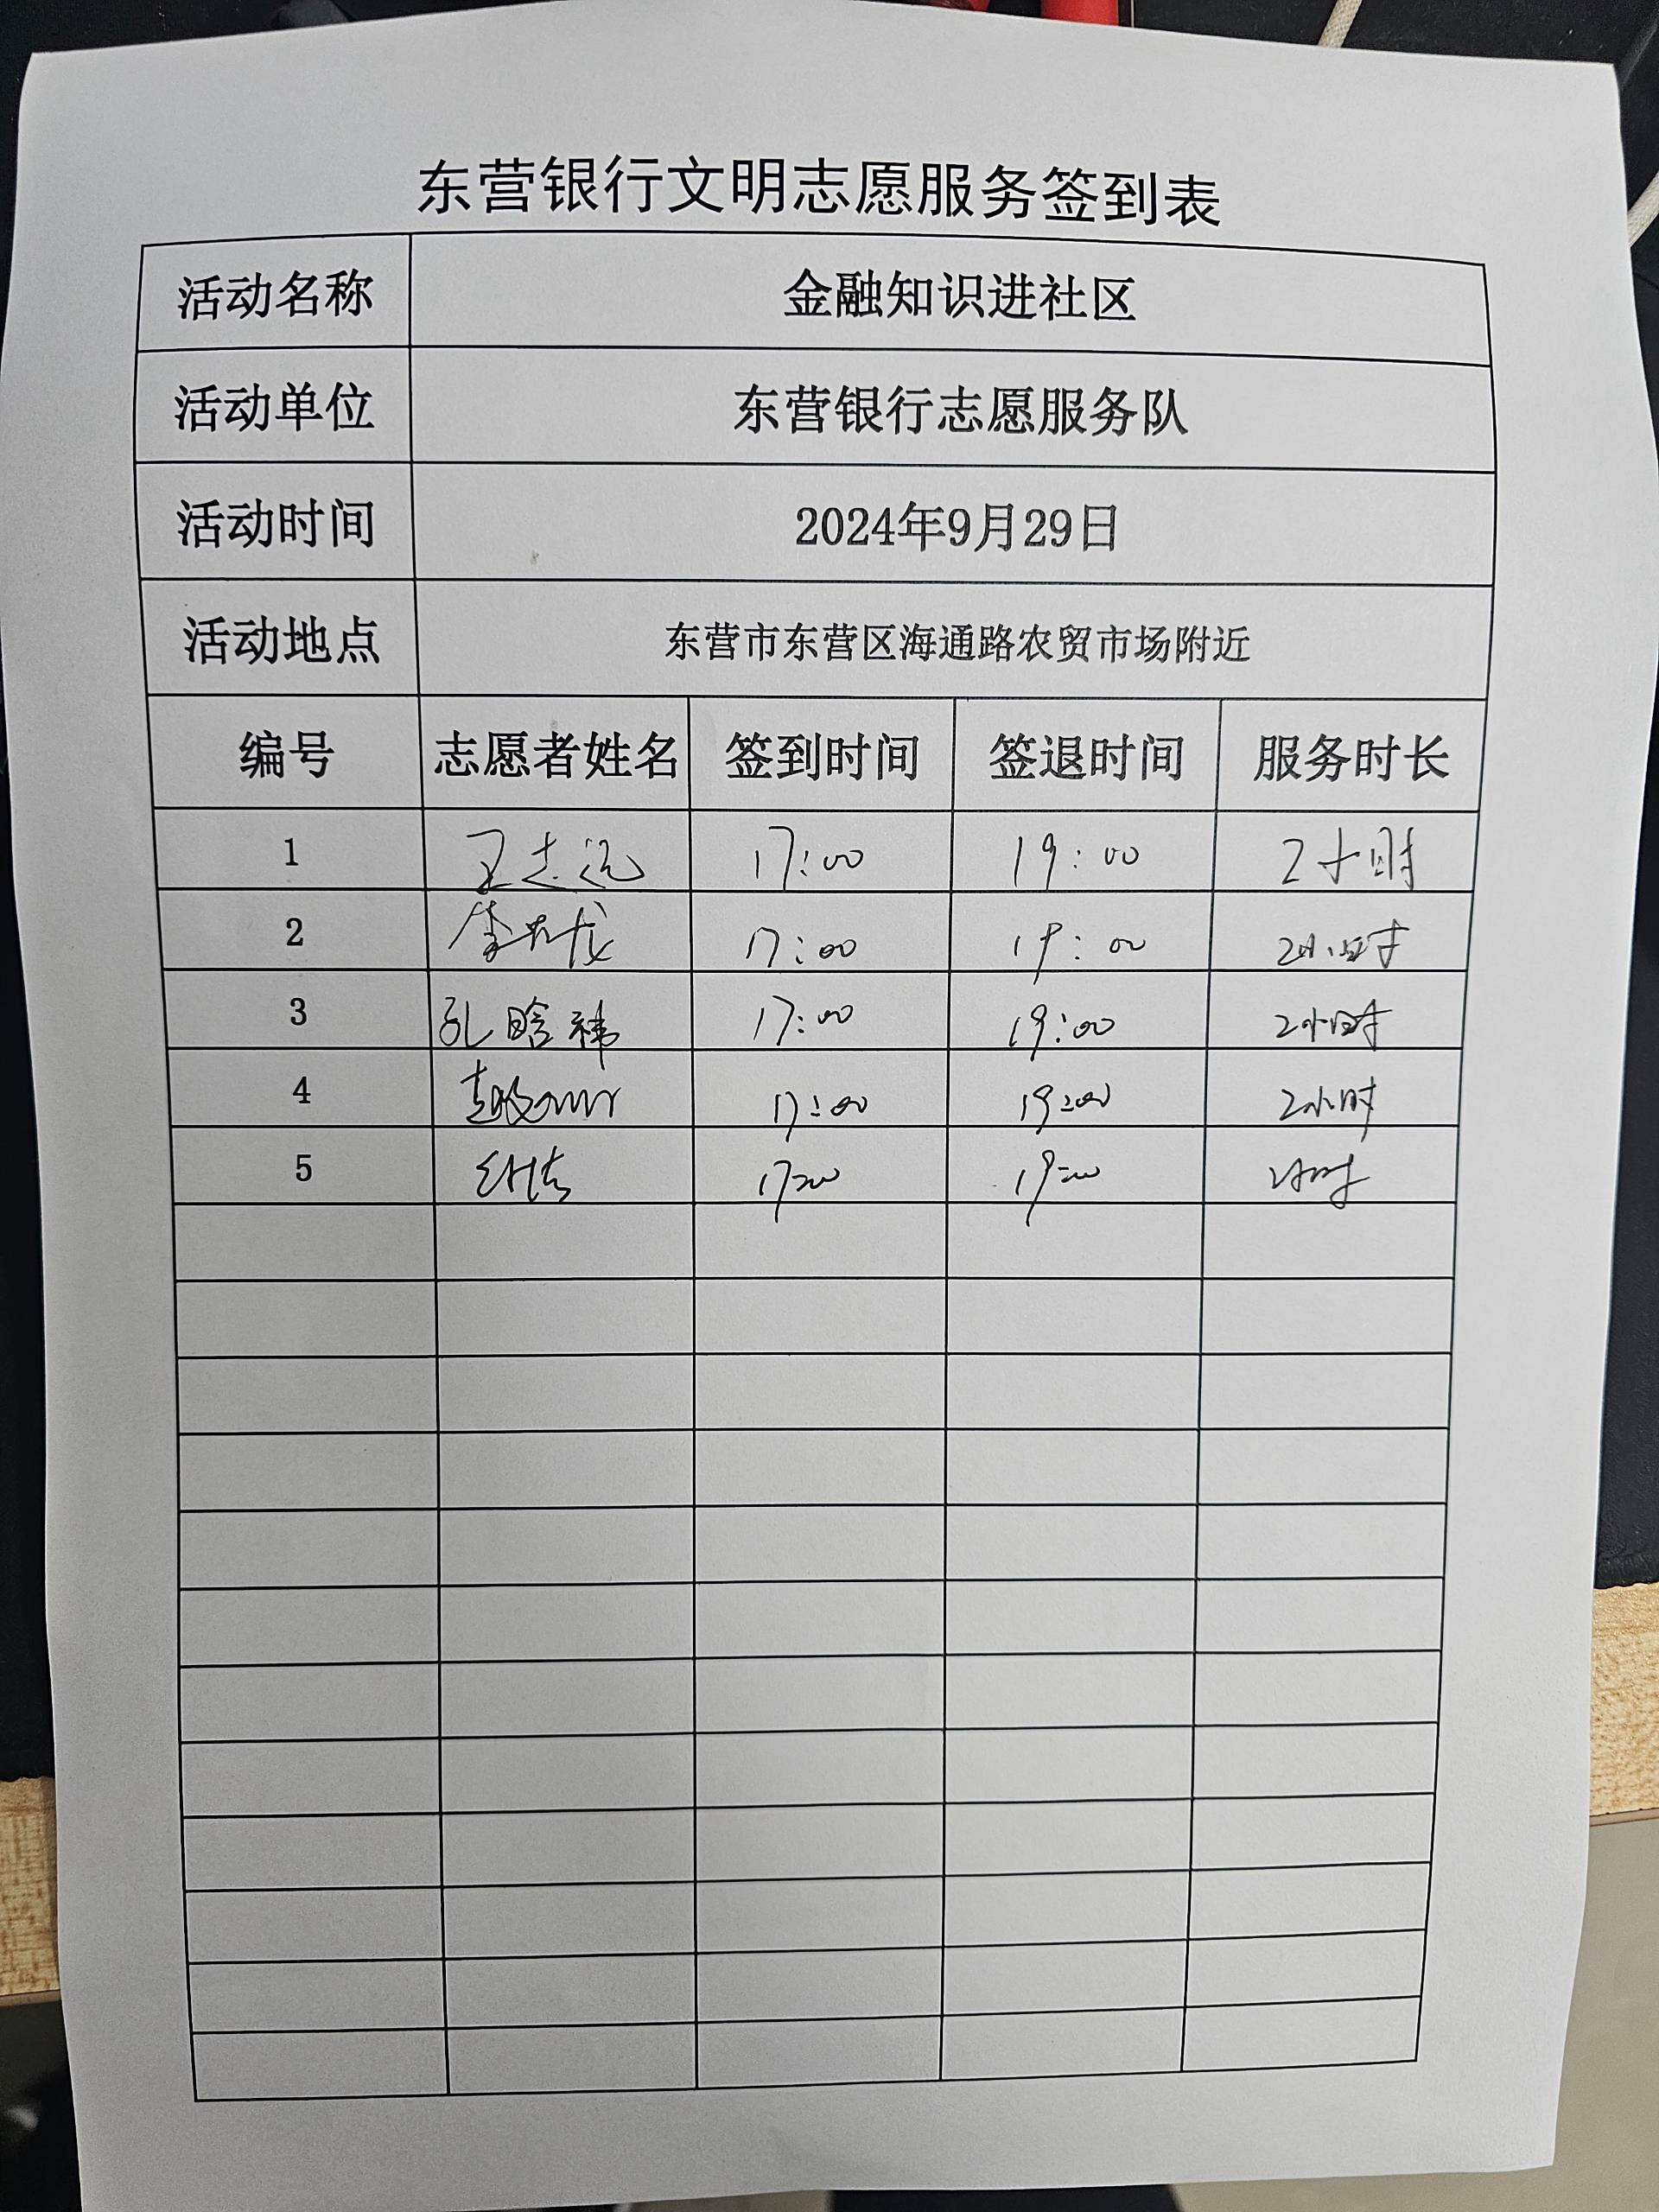 东营银行文明志愿服务签到表
活动名称 金融知识进社区
活动单位 东营银行志愿服务队
活动时间 2024年9月29日
活动地点 东营市东营区海通路农贸市场附近
编号 志愿者姓名 签到时间 签退时间 服务时长
1 王志远 17:00 19:00 2小时
2 17:00 19:00 2小时
3 孔晗祎 17:00 19:00 2小时
4 17:00 19:00 2小时
5 17:00 19:00 2小时